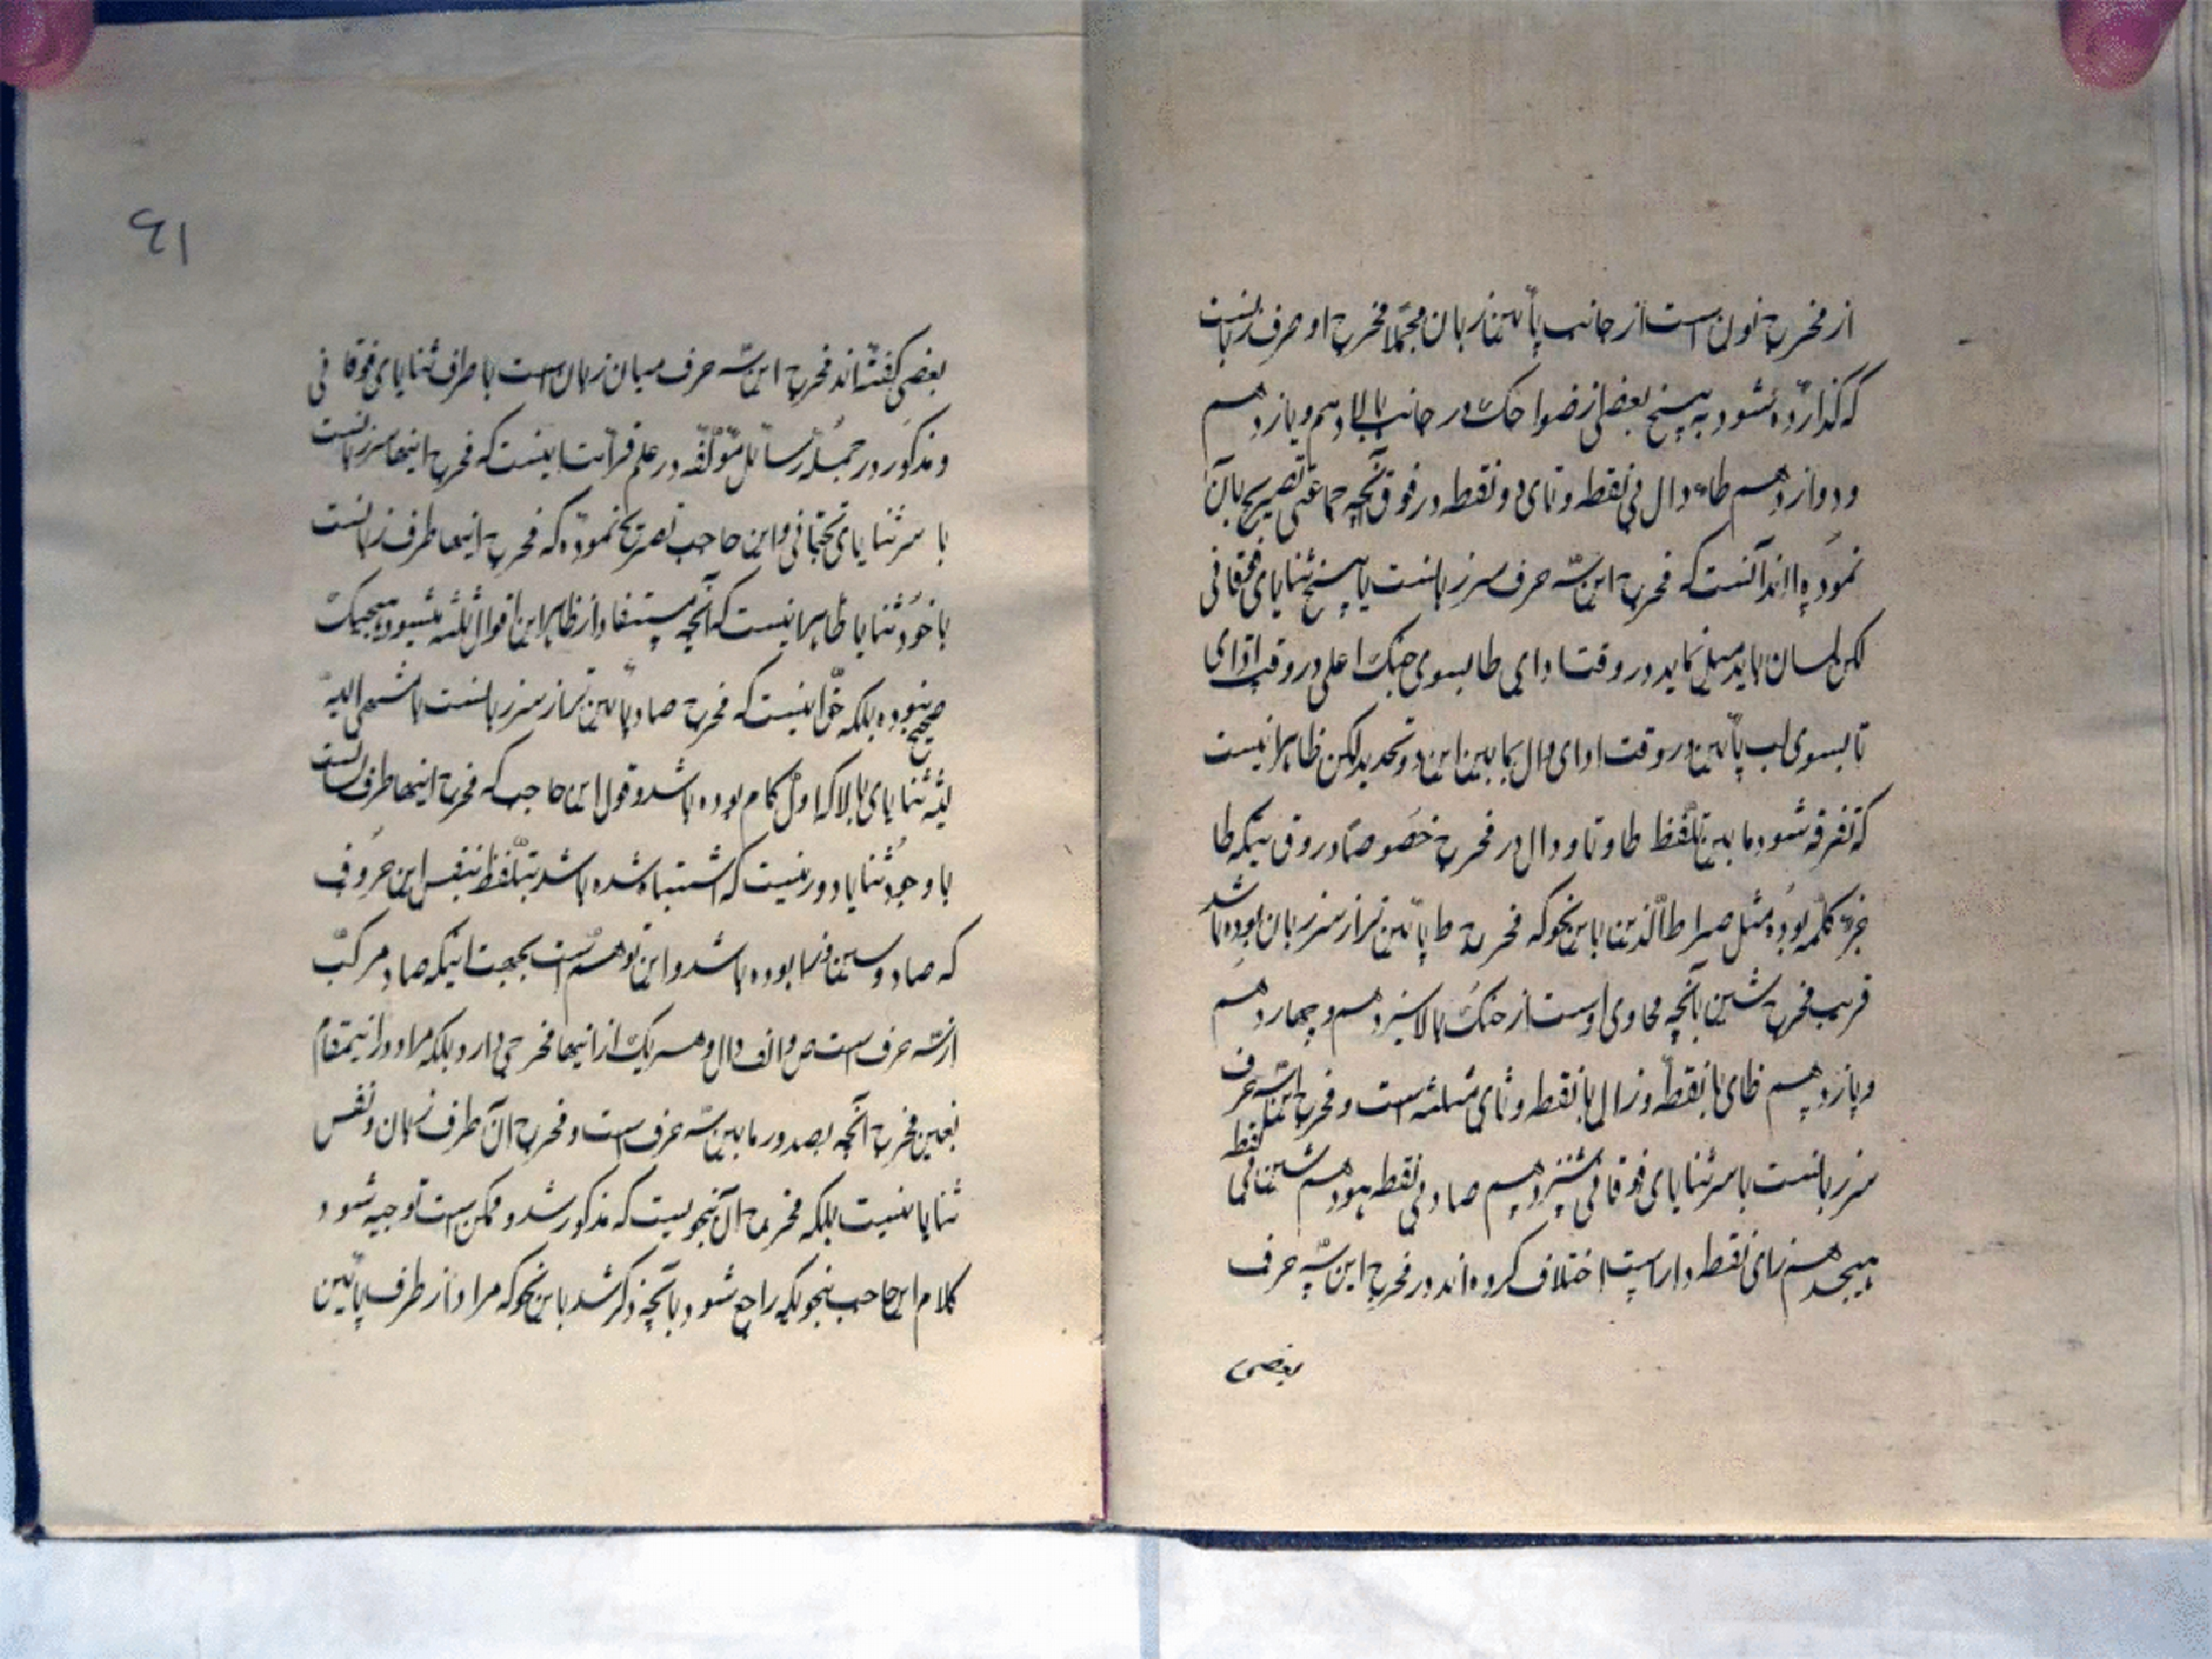 از مخرج نون است از جانب پائین زبان مجملا مخرج او حرف زبانست
که گذارده شود به بیخ بعضی از ضواحک در جانب بالا دهم و یازدهم
و دوازدهم طاء و دال بی نقطه و تای دو نقطه در فوق آنچه جماعتی تصریح بآن
نموده اند آنست که مخرج این سه حرف سر زبانست با بیخ ثنایای فوقانی
لکن لسان باید میل نماید در وقت ادای طا بسوی حنک اعلی در وقت ادای
تا بسوی لب پائین در وقت ادای دال بمابین این دو تحدید لکن ظاهر اینست
که تفرقه شود مابین تلفظ طا و تا و دال در مخرج خصوصا در وقتیکه طا
جزء کلمه بوده مثل صراط الذین باین نحو که مخرج ط پائین تر از سر زبان بوده باشد
قریب مخرج شین بآنچه محاوی اوست از حنک بالا سیزدهم و چهاردهم
و پازدهم ظای با نقطه و ذال با نقطه و ثای مثلثه است و مخرج این سه حرف
سر زبانست با سر ثنایای فوقانی شانزدهم صاد بی نقطه هفدهم سین بی نقطه
هیجدهم زای نقطه دار است اختلاف کرده اند در مخرج این سه حرف
بعضی
٤١
بعضی گفته اند مخرج این سه حرف میان زبان است با طرف ثنایای فوقانی
و مذکور در جمله رسائل مؤلفه در علم قرائت اینست که مخرج اینها سر زبانست
با سر ثنایای تحتانی و ابن حاجب تصریح نموده که مخرج اینها طرف زبانست
با خود ثنایا ظاهر اینست که آنچه مستفاد از ظاهر این اقوال ثلثه میشود هیچیک
صحیح نبوده بلکه حق اینست که مخرج صاد پائین تر از سر زبانست با منتهی الیه
لثه ثنایای بالا که اول کام بوده باشد و قول ابن حاجب که مخرج اینها طرف لسانست
با وجود ثنایا دور نیست که اشتباه شده باشد بتلفظ نفس این حروف
که صاد و سین و زا بوده باشد و این توهم است بجهت اینکه صاد مرکب
از سه حرف است ص و الف و دال و هر یک از اینها مخرجی دارد بلکه مراد در اینمقام
تعیین مخرج آنچه بصدور مابین سه حرف است و مخرج آن طرف زبان و نفس
ثنایا نیست بلکه مخرج آن بنحویست که مذکور شد و ممکن است توجیه شود
کلام ابن حاجب بنحویکه راجع شود بآنچه ذکر شد باین نحو که مراد از طرف پائین